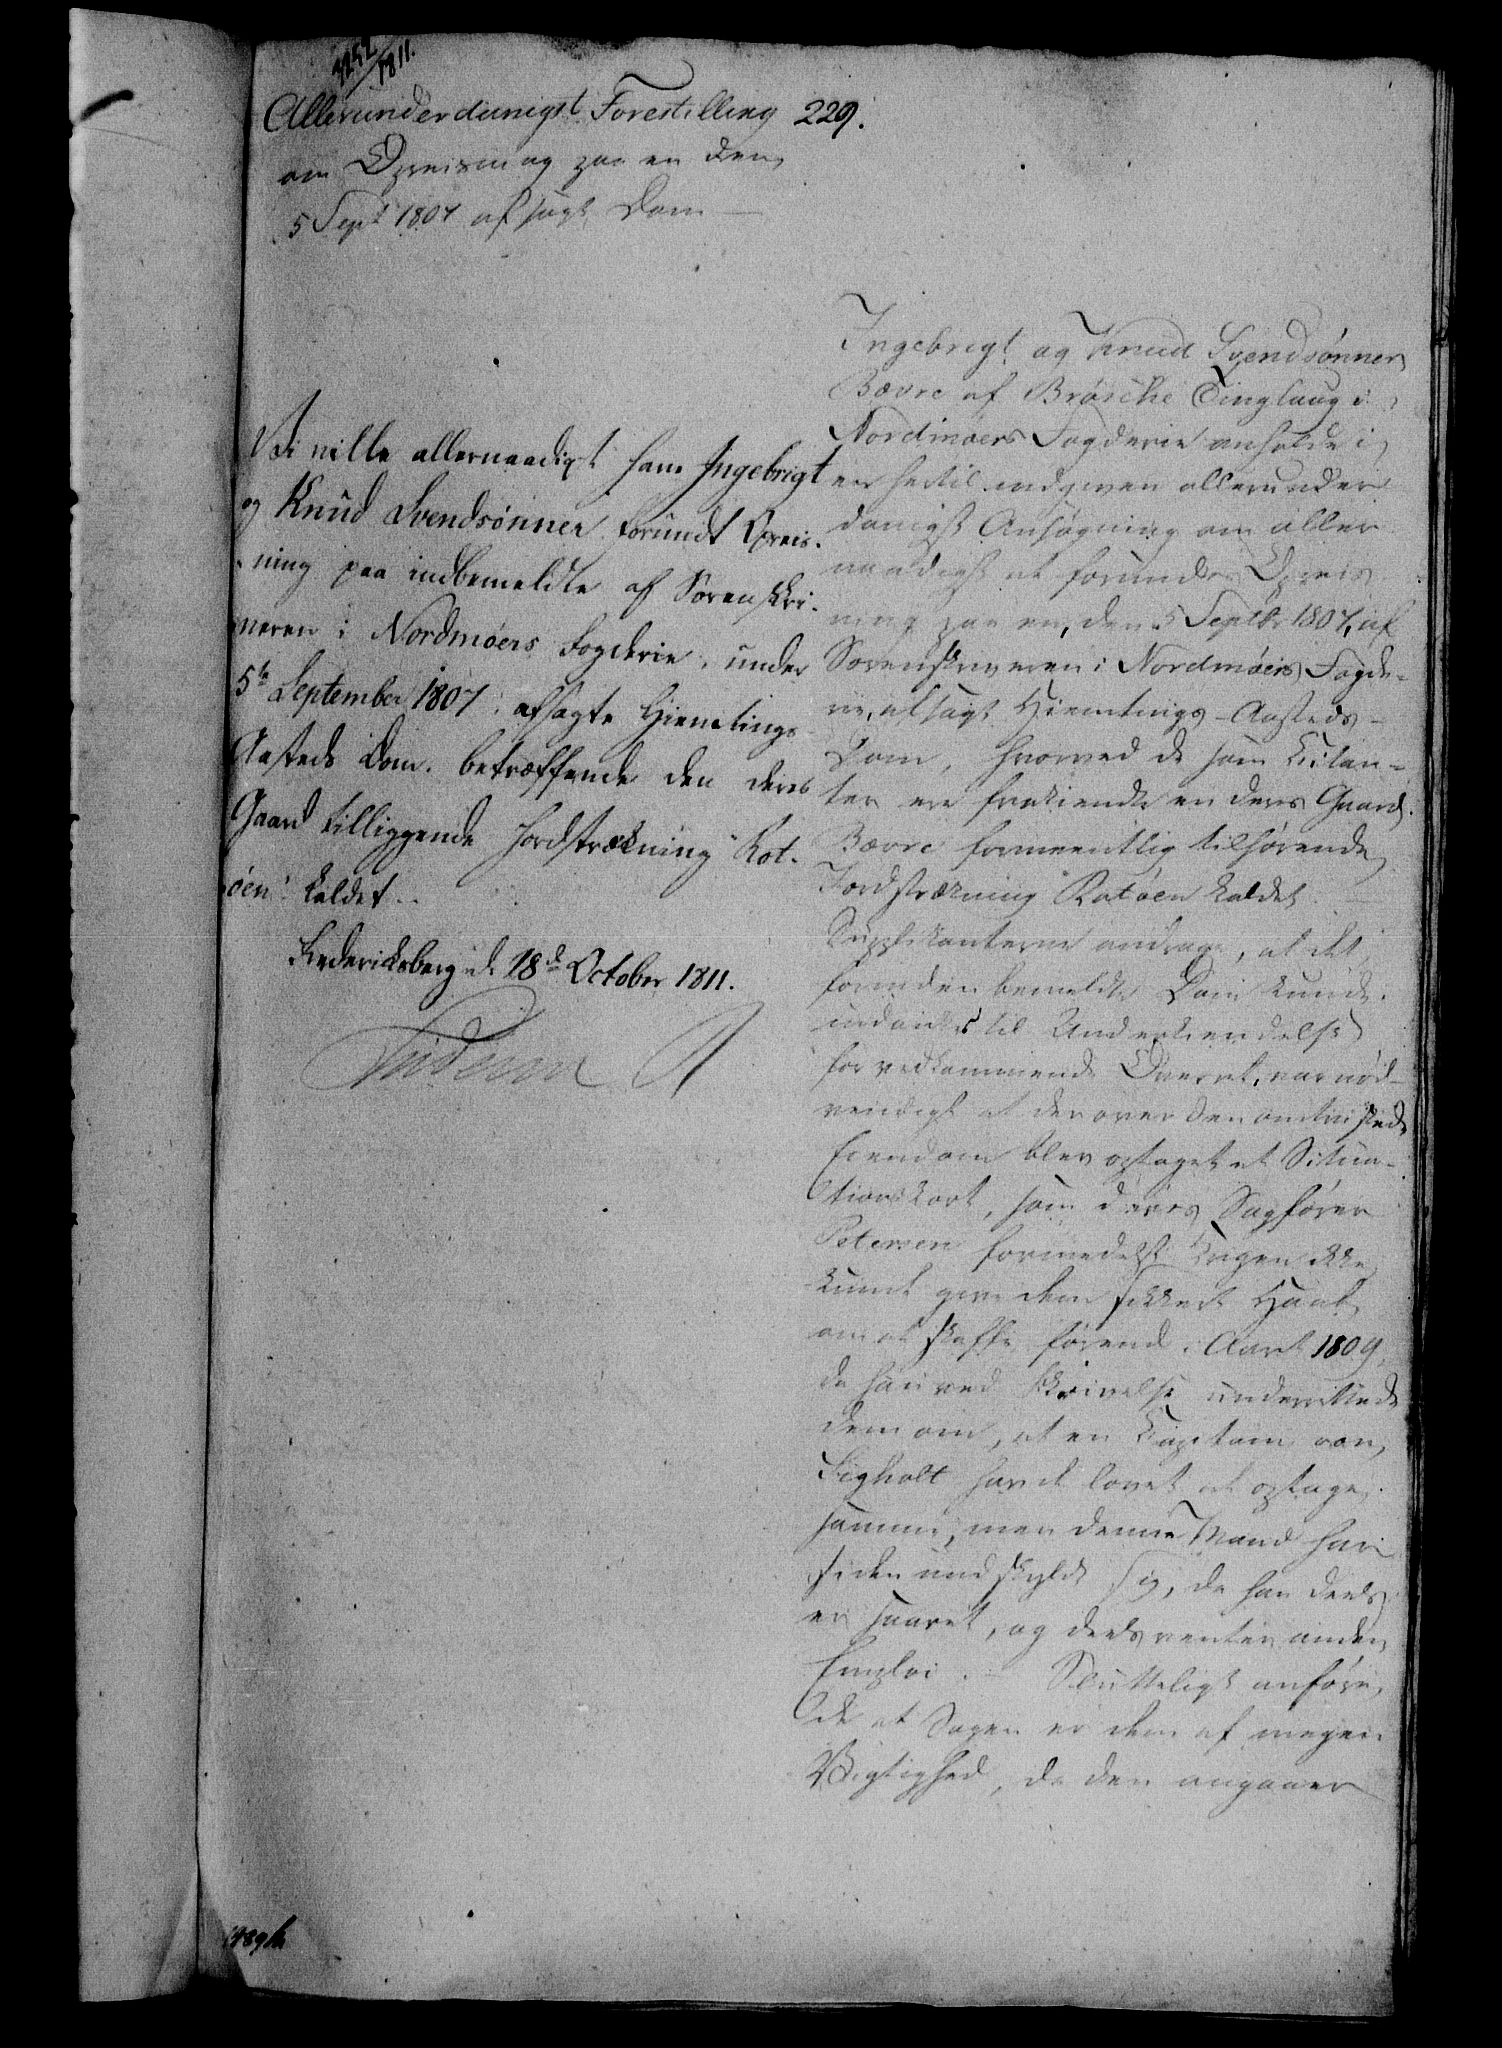 3252/1811.
Allerunderdanigst Forestilling 229.
om Opreisning paa en den
5 Sept 1807 afsagt Dom
Vi ville allernaadigst have Ingebrigt
og Knud Svendsönner forundt Opreis-
ning paa indbemeldte af Sorenskri-
veren i Nordmöers Fogderie, under
5te September 1807 afsagte Hiemtings
Aasteds Dom, betræffende den deres
Gaard tilliggende Jordstrækning Rot-
öen kaldet.
Frederiksberg d. 18d October 1811.
Frederik R
Ingebrigt og Knud Svendsönner
Bævre af Tinglaug i
Nordmöers Fogderie anholde i
en hertil indgiven allerunder
danigst Ansögning om aller
naadigst at forundes Opreis
ning paa en, den 5 Septbr 1807, af
Sorenskriveren i Nordmöers Fogde-
rie, afsagt Hiemtings-Aasteds-
Dom, hvorved de som Citan-
ter ere frakiendte en deres Gaard
Bævre formeentlig tilhörende
Jordstrækning Rotöen kaldet.
Supplikanterne andrage, at det,
forinden bemeldte Dom kunde
indankes til Underkiendelse
for vedkommende Overret, var nöd-
vendigt at der over den omtvistede
Eiendom blev optaget et Situa-
tionskort, som deres Sagförer
Petersen formedelst Krigen ikke
kunde give dem sikkert Haab
om at skaffe förend i Aaret 1809,
da han ved Skrivelse underrettede
dem om, at en Capitain von
Sigholt havde lovet at optage
samme, men denne Mand har
siden undskyldt sig, da han deels
er saaret, og deels venter anden
Emploi. Slutteligt anföre
de at Sagen er dem af megen
Vigtighed, da den angaaer